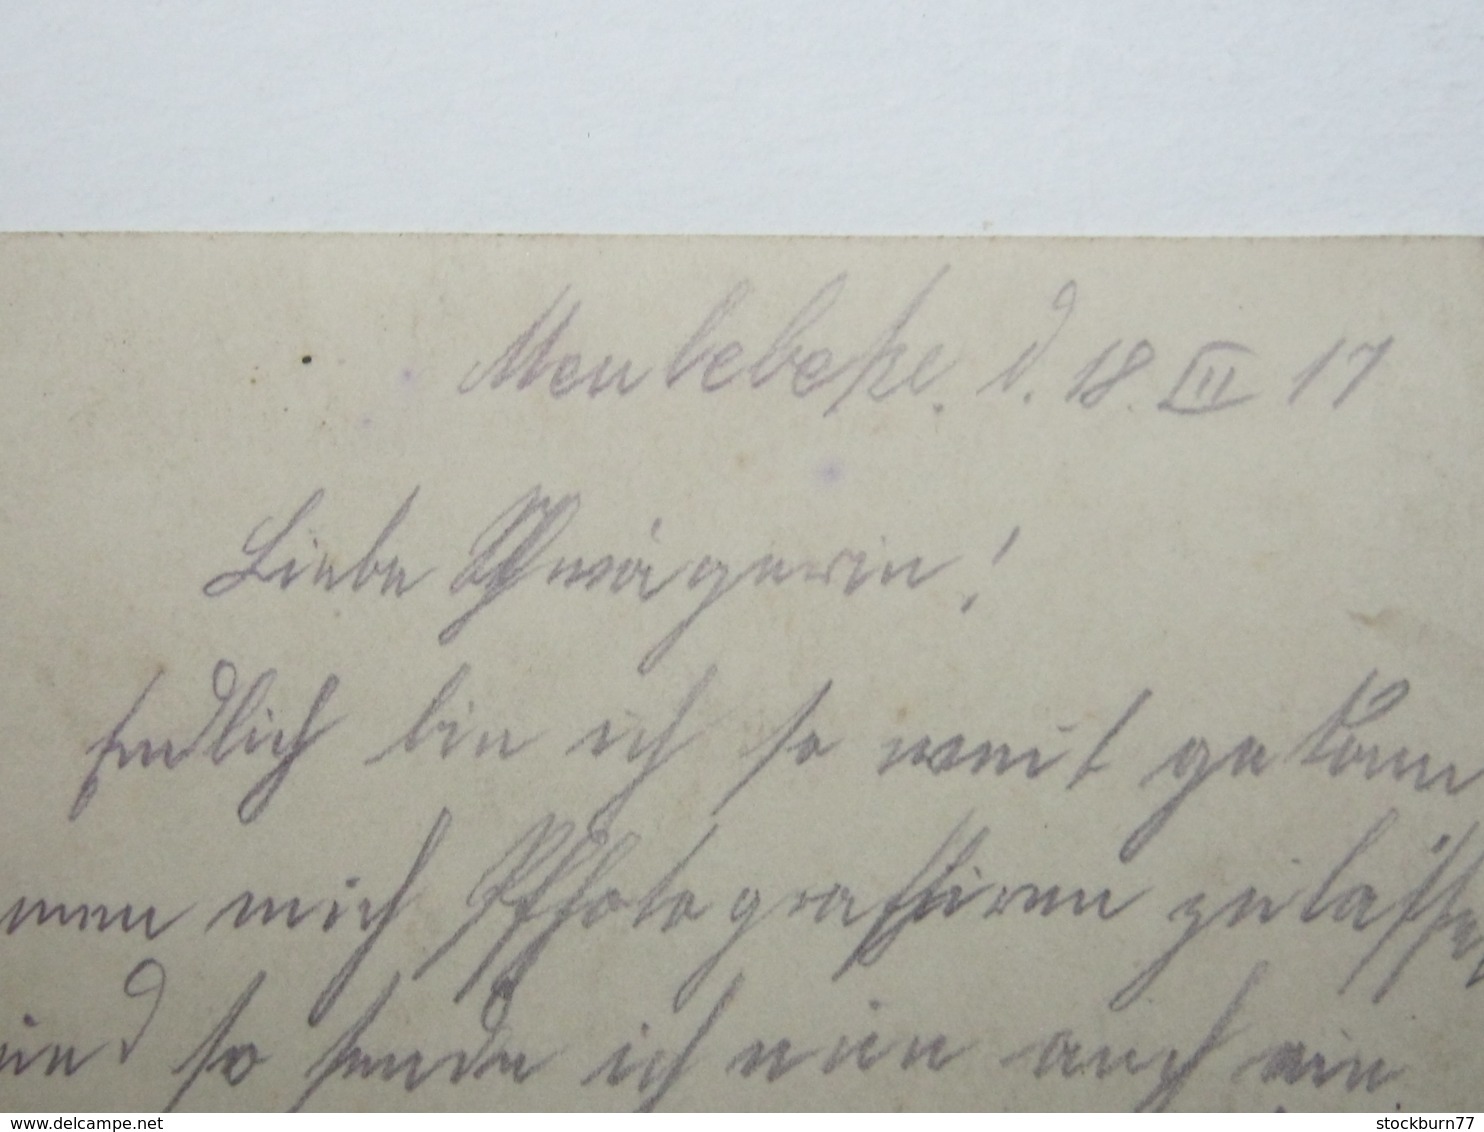 Meulebeke. d. 18. III 17
Liebe Schwägerin!
Endlich bin ich so weit gekom
men mich Photografiren zu lassen
und so sende ich nun auch ein
delcampe.net
stockburn77